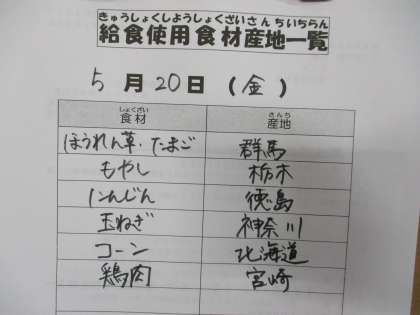 きゅうしょくしようしょくざいさんちいちらん
給食使用食材産地一覧
5月20日(金)
しょくざい さんち
食材 産地
ほうれん草・たまご 群馬
もやし 栃木
にんじん 徳島
玉ねぎ 神奈川
コーン 北海道
鶏肉 宮崎